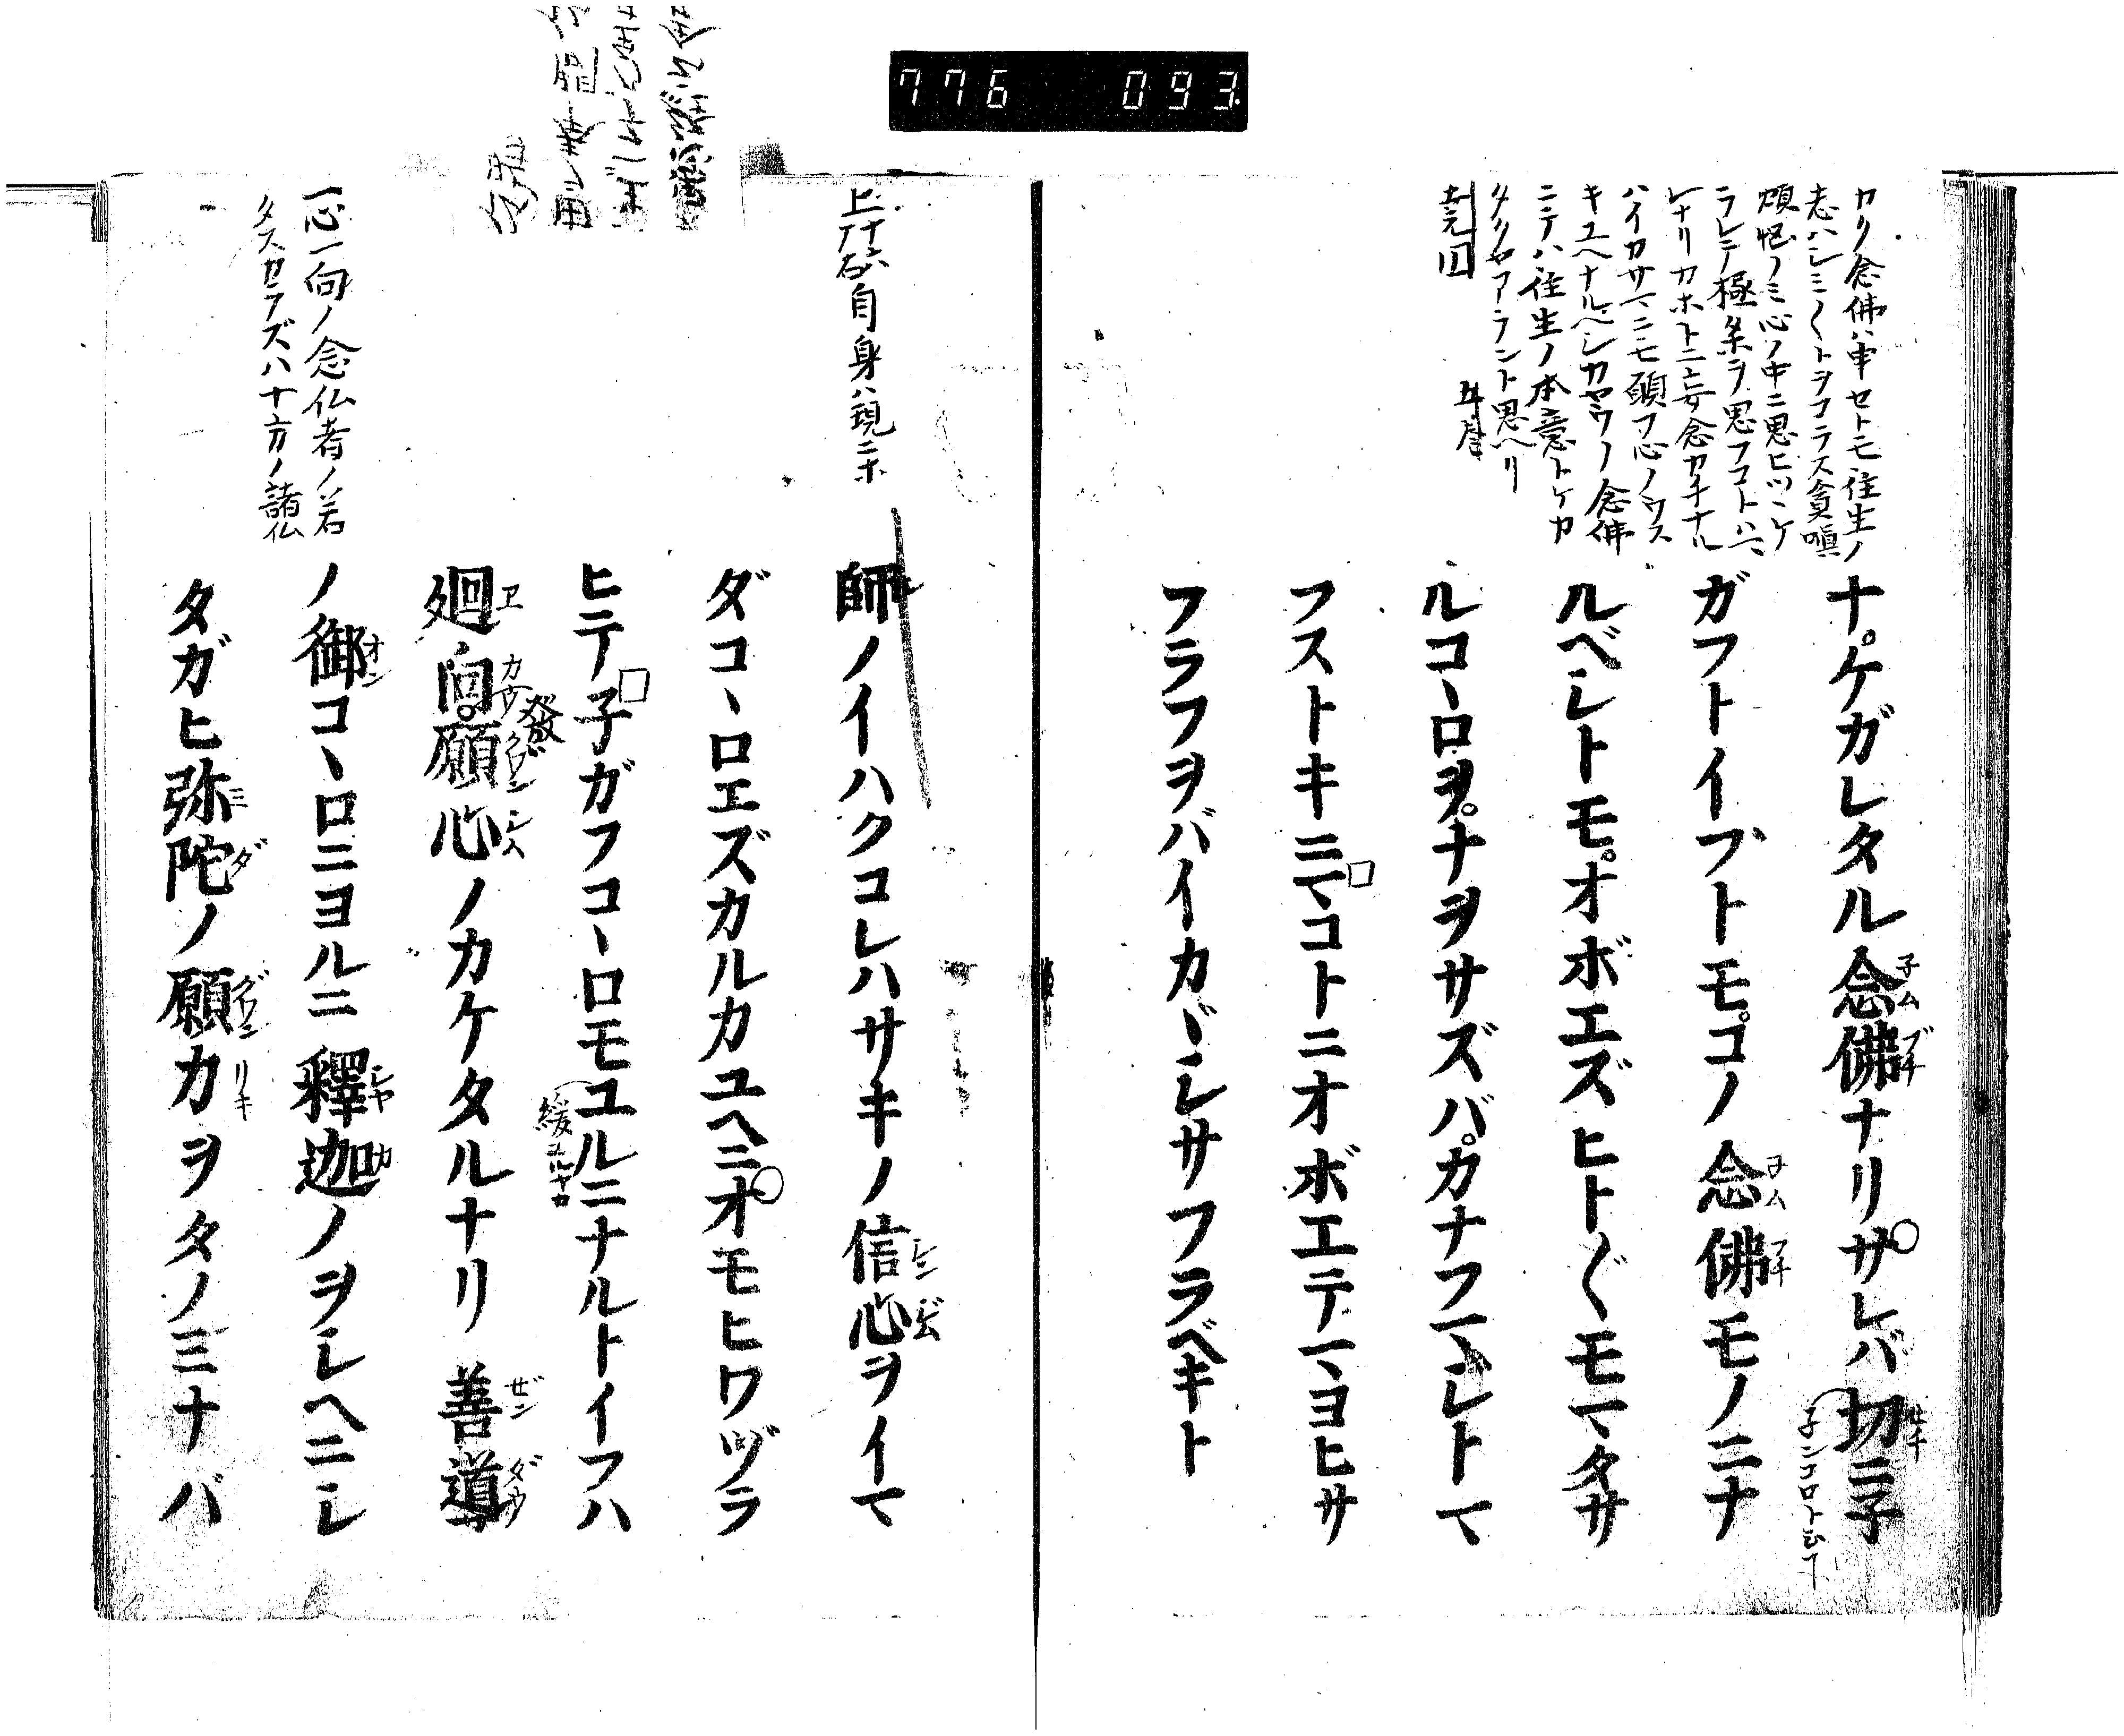 776 093
カリ念佛ハ申セトモ往生ノ
志ハシミ〱トヲコラス貪嗔
煩悩ノミ心ノ中ニ思ヒツヽケ
ラレテ極楽ヲ思フコトハマ
レナリカホトニ妄念カチナル
ハイカサマニモ願フ心ノウス
キユヘナルヘシカヤウノ念佛
ニテハ往生ノ本意トケカ
タクヤアラント思ヘリ
ナケガレタル念佛ナリサレバ切ニ子
子ムブチ
セチ
子ンコロト云フ
ガフトイフトモコノ念佛モノニナ
子ムフチ
ルベシトモオボエズヒト〲モマタサ
ルコヽロヲナヲサズバカナフマヽシトマ
フストキニマコトニオボエテマヨヒサ
フラフヲバイカヾシサフラフベキト
上十六
自身ハ現ニホ
師ノイハクコレハサキノ信心ヲイマ
シンジム
ダコヽロエズカルカユヘニオモヒワヅラ
ヒテ子ガフコヽロモユルニナルトイフハ
緩ユルナリ
廻向願心ノカケタルナリ善導
發
ヱカウグワンシム
ゼンダウ
一心一向ノ念仏者ノ若
タスカラズハ十方ノ諸仏
ノ御コヽロニヨルニ釋迦ノヲシヘニシ
オン
シヤカ
タガヒ弥陀ノ願力ヲタノミナバ
ミダ
グワンリキ